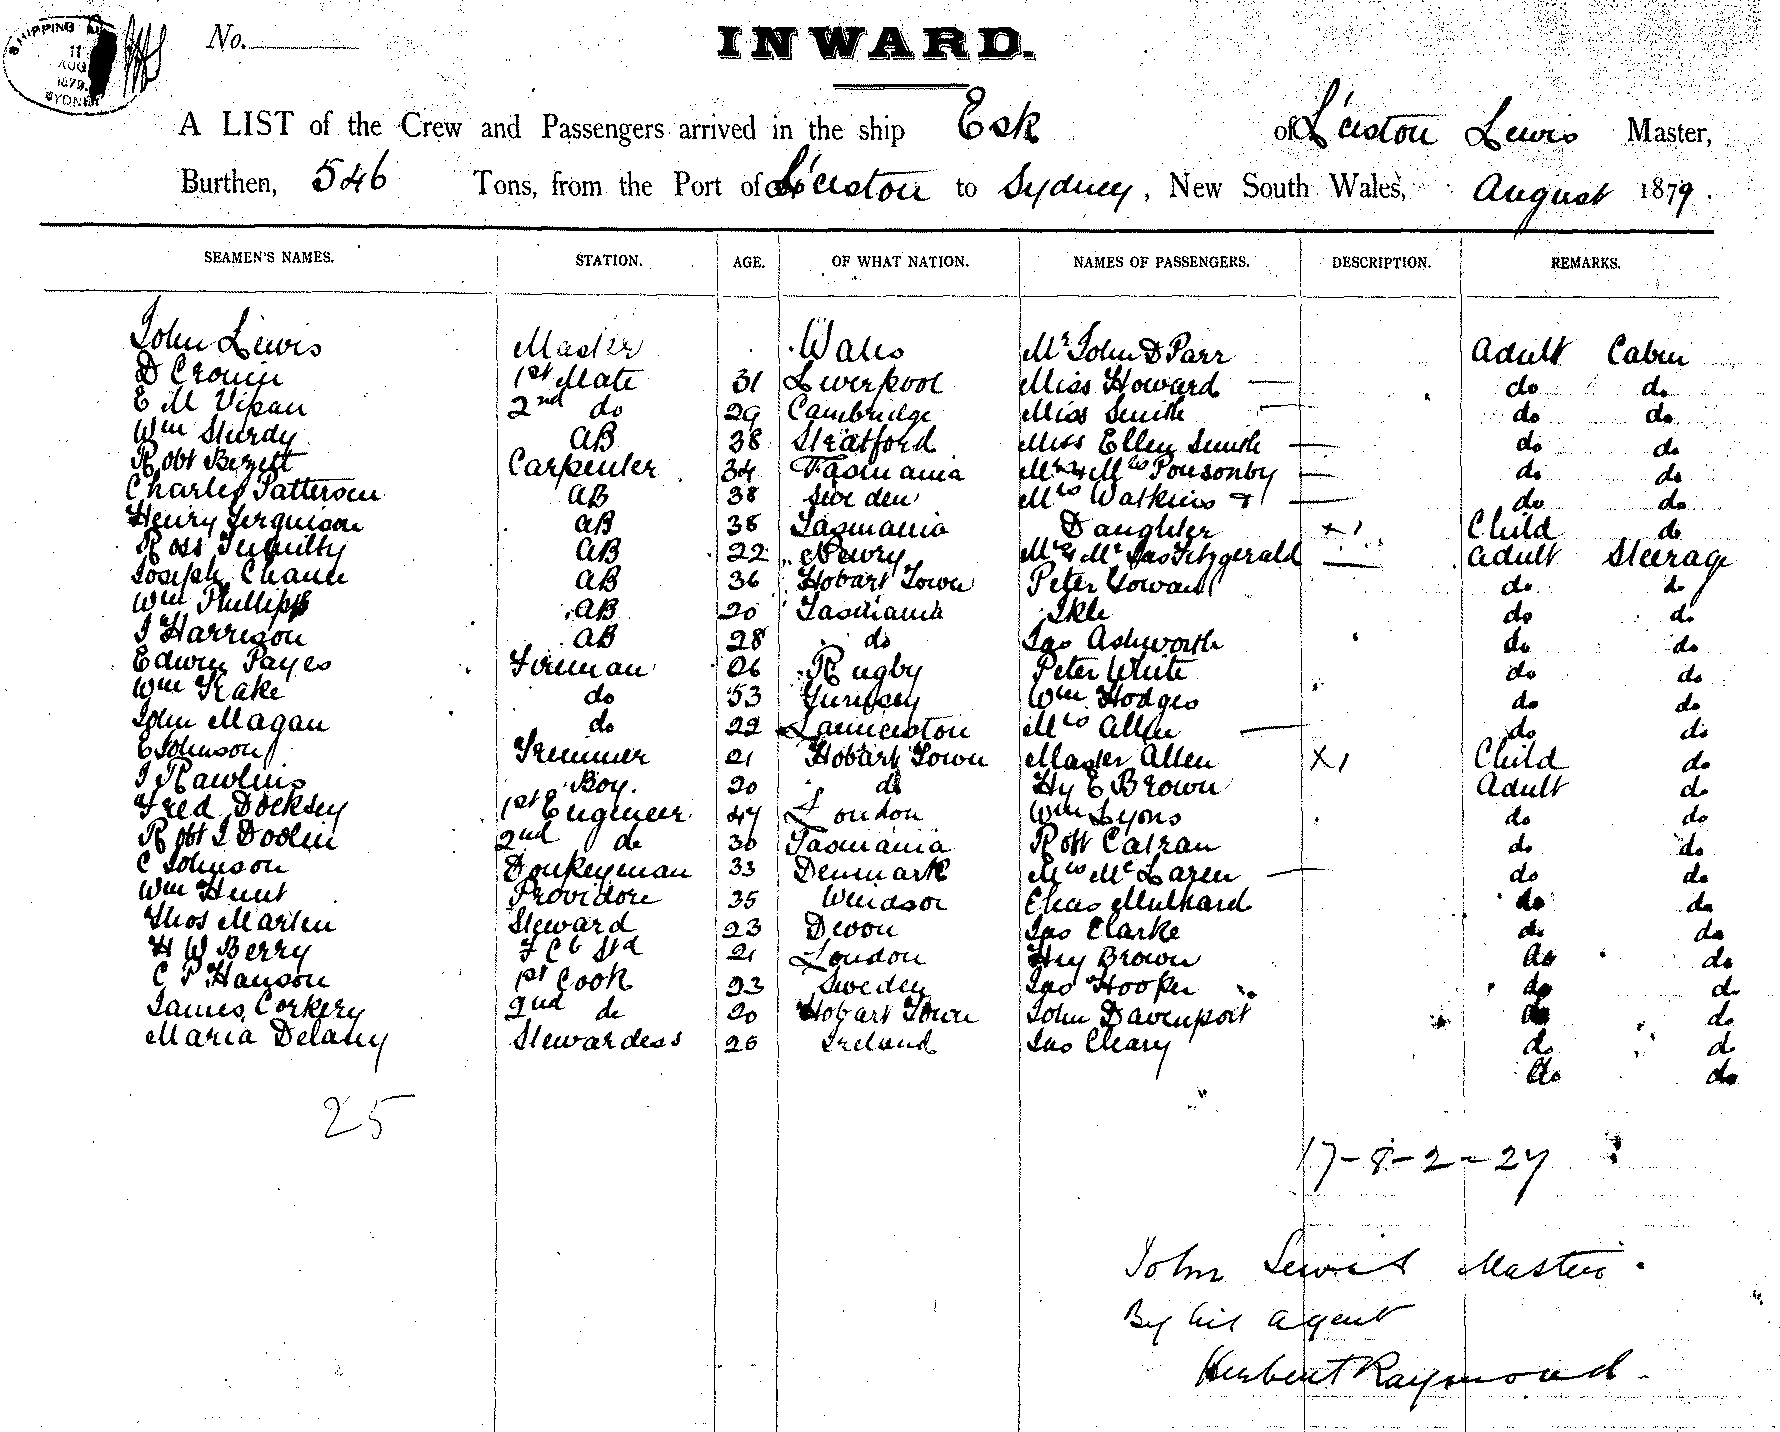 SHIPPING
11
AUG
1879
SYDNEY
No.
INWARD.
A LIST of the Crew and Passengers arrived in the ship Esk of L'ceston Lewis Master,
Burthen, 546 Tons, from the Port of L'ceston to Sydney, New South Wales, August 1879.
SEAMEN'S NAMES. STATION. AGE. OF WHAT NATION. NAMES OF PASSENGERS. DESCRIPTION. REMARKS.
John Lewis Master Wales Mr John D Parr Adult Cabin
D Cronin 1st Mate 31 Liverpool Miss Howard — do do
E M Vipan 2nd do 29 Cambridge Miss Smith — do do
Wm Sturdy AB 38 Stratford Miss Ellen Smith — do do
Robt Bezett Carpenter 34 Tasmania Mr & Mrs Ponsonby — do do
Charles Patterson AB 38 Sweden Mrs Watkins & — do do
Henry Ferguison AB 38 Tasmania Daughter x 1 Child do
Ross AB 22 Newry Mr & Mrs Jas Fitzgerald — Adult Steerage
Joseph Chann AB 36 Hobart Town Peter Gowan do do
Wm Phillips AB 20 Tasmania Ikle do do
J Harrison AB 28 do Jas Ashworth do do
Edwin Payes Fireman 26 Rugby Peter White do do
Wm Trake do 53 Gurnsey Wm Hodges do do
John Magan do 22 Launceston Mrs Allen — do do
E Johnson Trimmer 21 Hobart Town Master Allen x 1 Child do
J Rawlins Boy. 20 do Hy E Brown Adult do
Fred Docksey 1st Engineer 47 London Wm Lyons do do
Robt J Doolin 2nd do 30 Tasmania Robt Catran do do
C Johnson Donkeyman 33 Denmark Mrs McLaren — do do
Wm Hunt Providore 35 Windsor Chas Mulhard do do
Thos Martin Steward 23 Devon Jas Clarke do do
H W Berry F C b Std 21 London Hry Brown do do
C P Hanson 1st Cook 23 Sweden Jas Hooper do do
James Corkery 2nd do 20 Hobart Town John Davenport do do
Maria Delany Stewardess 26 Ireland Jas Cleary do do
do do
25
17-8-2-27
John Lewis Master.
By his agent
Herbert Raymond.